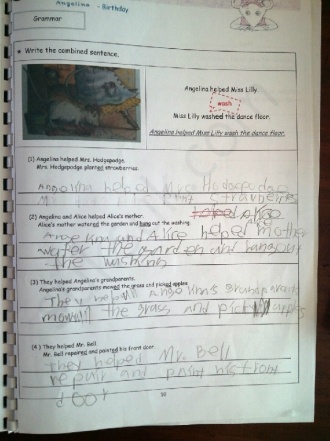 Angelina - Birthday
Grammar
Write the combined sentence.
Angelina helped Miss Lilly.
wash
Miss Lilly washed the dance floor.
Angelina helped Miss Lilly wash the dance floor.
(1) Angelina helped Mrs. Hodgepodge.
Mrs. Hodgepodge planted strawberries.
Angelina helped Mrs Hodgepodge
(2) Angelina and Alice helped Alice's mother.
Alice's mother watered the garden and hung out the washing.
Angelina and Alice helped mother
water the garden and hangout
the
(3) They helped Angelina's grandparents.
Angelina's grandparents mowed the grass and picked apples.
They
the grass and pick apples
(4) They helped Mr. Bell.
Mr. Bell repaired and painted his front door.
They helped Mr. Bell
repair and paint his front
door